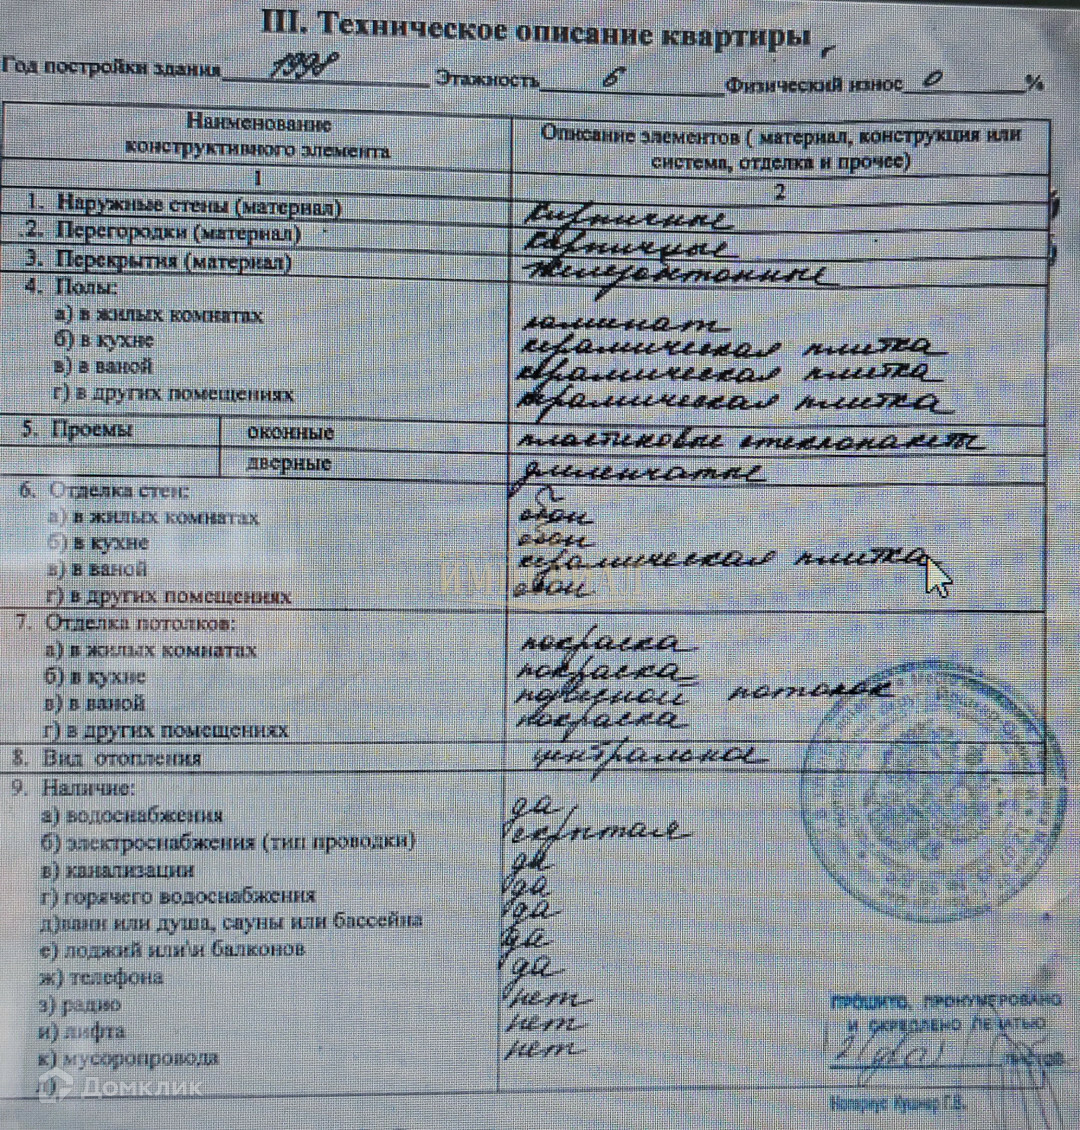 III. Техническое описание квартиры
Год постройки здания 1998 Этажность 6 Физический износ 0 %
Наименование
конструктивного элемента
Описание элементов ( материал, конструкция или
система, отделка и прочее)
1 2
1. Наружные стены (материал) кирпичные
2. Перегородки (материал) кирпичные
3. Перекрытия (материал) железобетонные
4. Полы:
а) в жилых комнатах ламинат
б) в кухне керамическая плитка
в) в ваной керамическая плитка
г) в других помещениях керамическая плитка
5. Проемы оконные пластиковые стеклопакеты
дверные филенчатые
6. Отделка стен:
а) в жилых комнатах обои
б) в кухне обои
в) в ваной керамическая плитка
г) в других помещениях обои
7. Отделка потолков:
а) в жилых комнатах покраска
б) в кухне покраска
в) в ваной подвесной потолок
г) в других помещениях покраска
8. Вид отопления центральное
9. Наличие:
а) водоснабжения да
б) электроснабжения (тип проводки) скрытая
в) канализации да
г) горячего водоснабжения да
д)ванн или душа, сауны или бассейна да
е) лоджий или\и балконов да
ж) телефона да
з) радио нет
и) лифта нет
к) мусоропровода нет
л)
ПРОШИТО, ПРОНУМЕРОВАНО
И СКРЕПЛЕНО ПЕЧАТЬЮ
ЛИСТОВ
Нотариус Кушнер Г.В.
Домклик